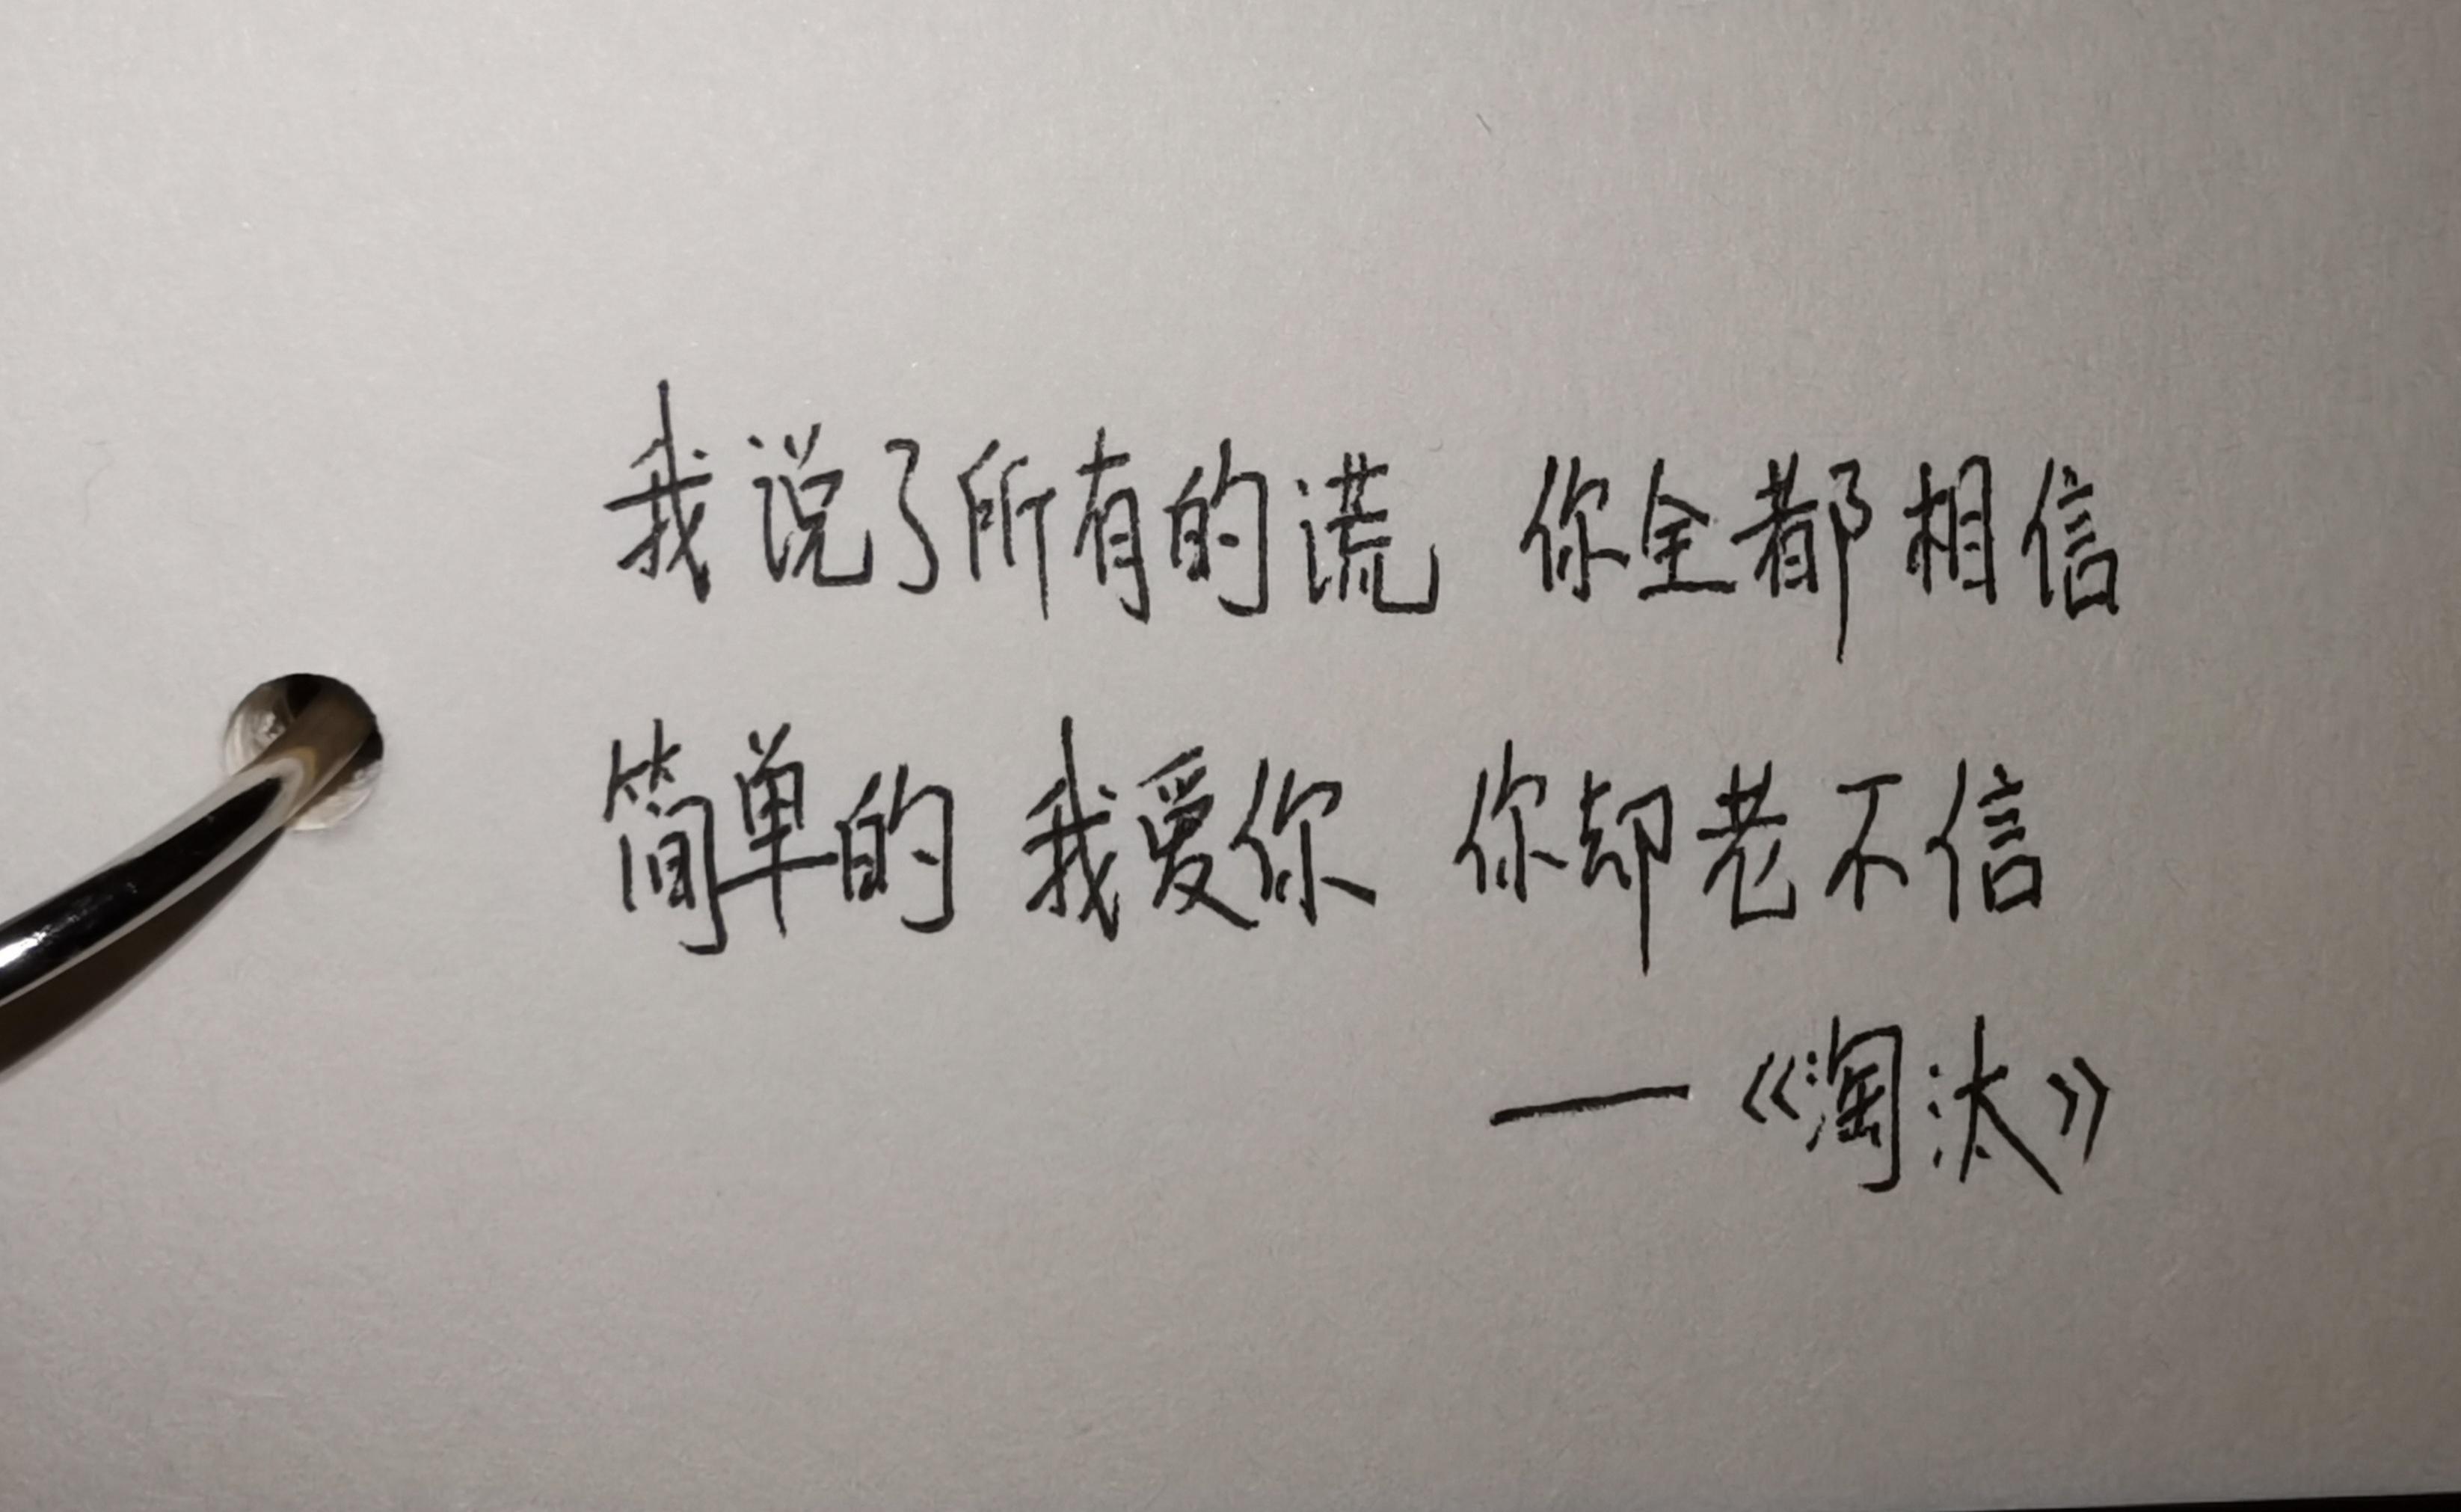 我说了所有的谎 你全都相信
简单的 我爱你 你却老不信
—《淘汰》